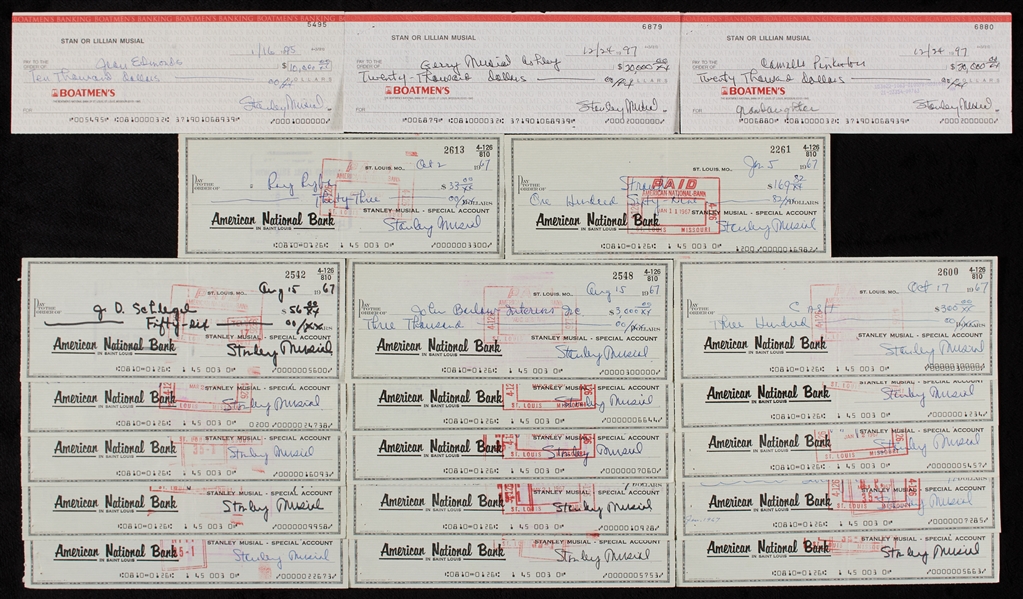 BOATMEN'S BANKING BOATMEN'S BANKING BOATMEN'S BANKING
5495
STAN OR LILLIAN MUSIAL
1/16 1995
PAY TO THE ORDER OF Jean Edmonds $10,000
Ten Thousand Dollars
BOATMEN'S
FOR Stanley Musial
6879
STAN OR LILLIAN MUSIAL
12/24 1997
PAY TO THE ORDER OF Gerry Musial $20,000
Twenty-Thousand dollars DOLLARS
BOATMEN'S
FOR Stanley Musial
6880
STAN OR LILLIAN MUSIAL
12/24 1997
PAY TO THE ORDER OF $20,000
Twenty Thousand dollars DOLLARS
BOATMEN'S
FOR grandaughter Stanley Musial
2613 4-126 810
ST. LOUIS, MO., Oct 2 1967
PAY TO THE ORDER OF Ray $33 00/XX
Thirty-Three 00/ DOLLARS
American National Bank
IN SAINT LOUIS
STANLEY MUSIAL - SPECIAL ACCOUNT
Stanley Musial
0810=0126 1 45 003 0 0000003300
2261 4-126 810
Jan 5 1967
PAY TO THE ORDER OF $169 82/XX
One Hundred Sixty-Nine 82/ DOLLARS
PAID
AMERICAN NATIONAL BANK
JAN 11 1967
ST. LOUIS MISSOURI
American National Bank
IN SAINT LOUIS
STANLEY MUSIAL - SPECIAL ACCOUNT
Stanley Musial
0810=0126 1 45 003 0 1200 0000016982
2542 4-126 810
ST. LOUIS, MO., Aug 15 1967
PAY TO THE ORDER OF J. D. Schlegel $56 00/XX
Fifty-six 00/XX DOLLARS
American National Bank
IN SAINT LOUIS
STANLEY MUSIAL - SPECIAL ACCOUNT
Stanley Musial
0810=0126 1 45 003 0 0000005600
2548 4-126 810
ST. LOUIS, MO., Aug 15 1967
PAY TO THE ORDER OF John Interiors Inc $3,000 00/XX
Three Thousand 00/ DOLLARS
American National Bank
IN SAINT LOUIS
STANLEY MUSIAL - SPECIAL ACCOUNT
Stanley Musial
0810=0126 1 45 003 0 0000300000
2600 4-126 810
ST. LOUIS, MO., Oct 17 1967
PAY TO THE ORDER OF CASH $300 00/XX
Three Hundred 00/ DOLLARS
American National Bank
IN SAINT LOUIS
STANLEY MUSIAL - SPECIAL ACCOUNT
Stanley Musial
0810=0126 1 45 003 0
American National Bank
IN SAINT LOUIS
STANLEY MUSIAL - SPECIAL ACCOUNT
Stanley Musial
0810=0126 1 45 003 0 0200 0000024738
American National Bank
IN SAINT LOUIS
STANLEY MUSIAL - SPECIAL ACCOUNT
Stanley Musial
ST. LOUIS
0810=0126 1 45 003 0 0000006644
American National Bank
IN SAINT LOUIS
STANLEY MUSIAL - SPECIAL ACCOUNT
Stanley Musial
0810=0126 1 45 003 0 0000001234
American National Bank
IN SAINT LOUIS
STANLEY MUSIAL - SPECIAL ACCOUNT
35-1
Stanley Musial
0810=0126 1 45 003 0 0000016093
American National Bank
IN SAINT LOUIS
STANLEY MUSIAL - SPECIAL ACCOUNT
Stanley Musial
0810=0126 1 45 003 0 0000007060
American National Bank
IN SAINT LOUIS
STANLEY MUSIAL - SPECIAL ACCOUNT
ST. LOUIS MISSOURI
Stanley Musial
0810=0126 1 45 003 0 0000005457
American National Bank
IN SAINT LOUIS
STANLEY MUSIAL - SPECIAL ACCOUNT
Stanley Musial
0810=0126 1 45 003 0 0000009958
American National Bank
IN SAINT LOUIS
STANLEY MUSIAL - SPECIAL ACCOUNT
Stanley Musial
0810=0126 1 45 003 0 0000010928
American National Bank
IN SAINT LOUIS
STANLEY MUSIAL - SPECIAL ACCOUNT
4-126
Stanley Musial
0810=0126 1 45 003 0 0000007285
American National Bank
IN SAINT LOUIS
STANLEY MUSIAL - SPECIAL ACCOUNT
35-1
Stanley Musial
0810=0126 1 45 003 0 0000022673
American National Bank
IN SAINT LOUIS
STANLEY MUSIAL - SPECIAL ACCOUNT
Stanley Musial
0810=0126 1 45 003 0 0000005753
American National Bank
IN SAINT LOUIS
STANLEY MUSIAL - SPECIAL ACCOUNT
Stanley Musial
0810=0126 1 45 003 0 0000005663